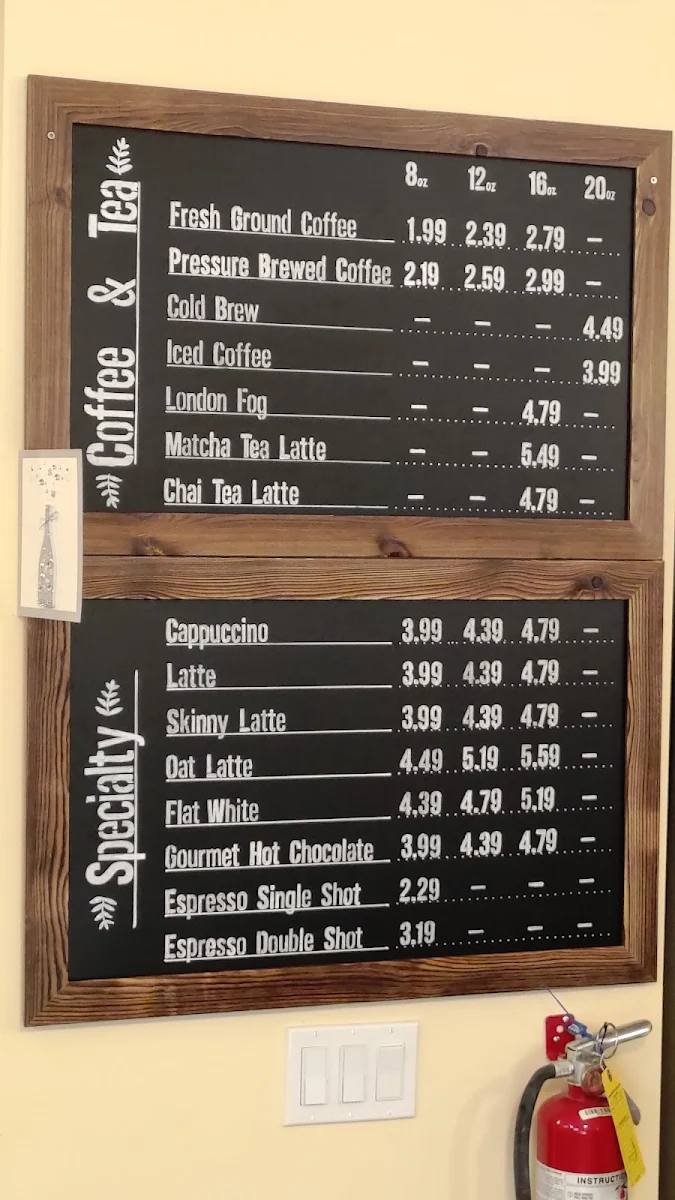 Coffee & Tea
8oz 12oz 16oz 20oz
Fresh Ground Coffee 1.99 2.39 2.79 –
Pressure Brewed Coffee 2.19 2.59 2.99 –
Cold Brew – – – 4.49
Iced Coffee – – – 3.99
London Fog – – 4.79 –
Matcha Tea Latte – – 5.49 –
Chai Tea Latte – – 4.79 –
Specialty
Cappuccino 3.99 4.39 4.79 –
Latte 3.99 4.39 4.79 –
Skinny Latte 3.99 4.39 4.79 –
Oat Latte 4.49 5.19 5.59 –
Flat White 4.39 4.79 5.19 –
Gourmet Hot Chocolate 3.99 4.39 4.79 –
Espresso Single Shot 2.29 – – –
Espresso Double Shot 3.19 – – –